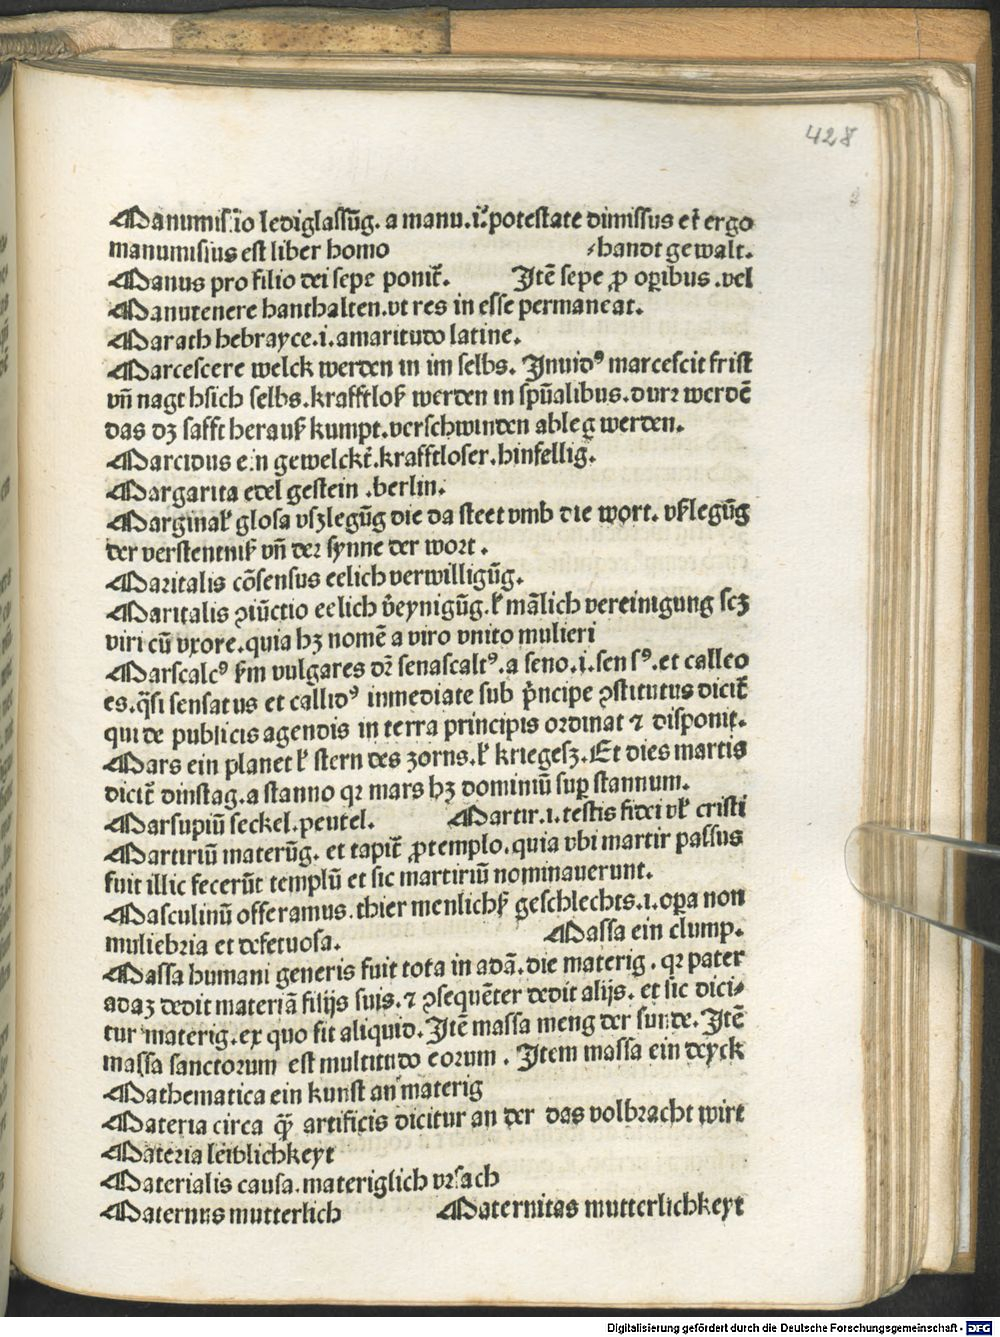 428
Manumissio lediglassūg. a manu.i. potestate dimissus et ergo
manumissus est liber homo ⸗handt gewalt.
Manus pro filio dei sepe ponit̄. Itē sepe ꝓ oꝑibus .vel
Manutenere hanthalten.vt res in esse permaneat.
Marath hebrayce.i.amaritudo latine.
Marcescere welck werden in im selbs. Inuidꝰ marcescit frist
vn̄ nagt hsich selbs.krafftloß werden in sp̄ualibus.durꝛ werdē
das dz safft herauß kumpt.verschwinden ableg werden.
Marcidus ein gewelckt̄.krafftloser.hinfellig.
Margarita edel gestein .berlin.
Marginaƚ glosa vszlegūg die da steet vmb die wort. vßlegūg
der verstentniß vn̄ der synne der wort.
Maritalis cōsensus eelich verwilligūg.
Maritalis ꝯiūctio eelich v̄eynigūg.ƚ mālich vereinigung scꝫ
viri cū vxore.quia hꝫ nomē a viro vnito mulieri
Marscalcꝰ ẜm vulgares dꝛ̄ senascaltꝰ.a seno.i.sensꝰ.et calleo
es.q̄si sensatus et callidꝰ inmediate sub p̄ncipe ꝯstitutus dicit̄
qui de publicis agendis in terra principis ordinat ⁊ disponit.
Mars ein planet ƚ stern des zorns.ƚ kriegesz. Et dies martis
dicit̄ dinstag.a stanno qꝛ mars hꝫ dominiū suꝑ stannum.
Marsupiū seckel.peutel. Martir.i.testis fidei vƚ cristi
Martiriū materūg. et capit̄ ꝓtemplo.quia vbi martir passus
fuit illic fecerūt templū et sic martiriū nominauerunt.
Masculinū offeramus.thier menlichß geschlechts.i.oꝑa non
muliebꝛia et defetuosa. Massa ein clump.
Massa humani generis fuit tota in adā.die materig. qꝛ pater
adaꝫ dedit materiā filijs suis.⁊ ꝯsequēter dedit alijs. et sic dici⸗
tur materig.ex quo fit aliquid. Itē massa meng der sunde. Itē
massa sanctorum est multitudo eorum. Item massa ein deyck
Mathematica ein kunst an materig
Materia circa q̄ artificis dicitur an der das volbracht wirt
Mateꝛia leiblichkeyt
Materialis causa.materiglich vrsach
Maternus mutterlich Maternitas mutterlichkeyt
Digitalisierung gefördert durch die Deutsche Forschungsgemeinschaft - DFG